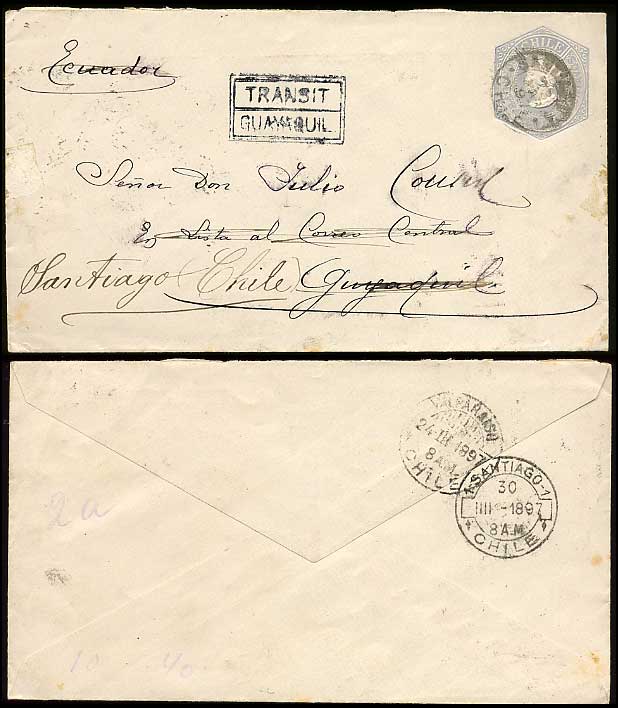 Ecuador
CHILE
TRANSIT
GUAYAQUIL
Señor Don Julio
En Lista al Correo Central
Santiago (Chile) Guyaquil
VALPARAISO
24 III 1897
8 AM
CHILE
SANTIAGO-1
30
IIII-1897
8 A.M
CHILE
2a
10 40